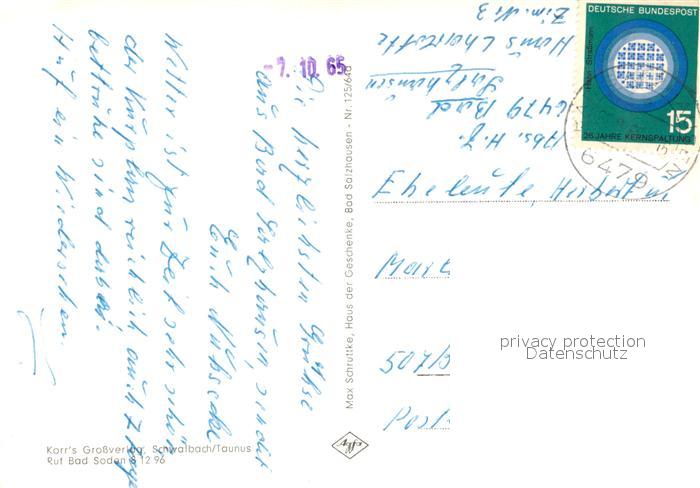 -7. 10. 65
Die herzlichsten Grüße
aus Bad Salzhausen sendet
Euch
Wetter ist zur Zeit sehr schön
der Kurplan reichlich auch
sind dabei.
Auf ein Wiedersehen.
Max Schruttke, Haus der Geschenke, Bad Salzhausen - Nr. 125/64a
Korr's Großverlag, Schwalbach/Taunus
Ruf Bad Soden 6 12 96
Agfa
DEUTSCHE BUNDESPOST
Hahn · Straßmann
15
25 JAHRE KERNSPALTUNG
6479
Abs. H. J.
6479 Bad
Salzhausen
Haus Charlotte
Zim. Nr 3
Eheleute
507/B
Post
privacy protection
Datenschutz